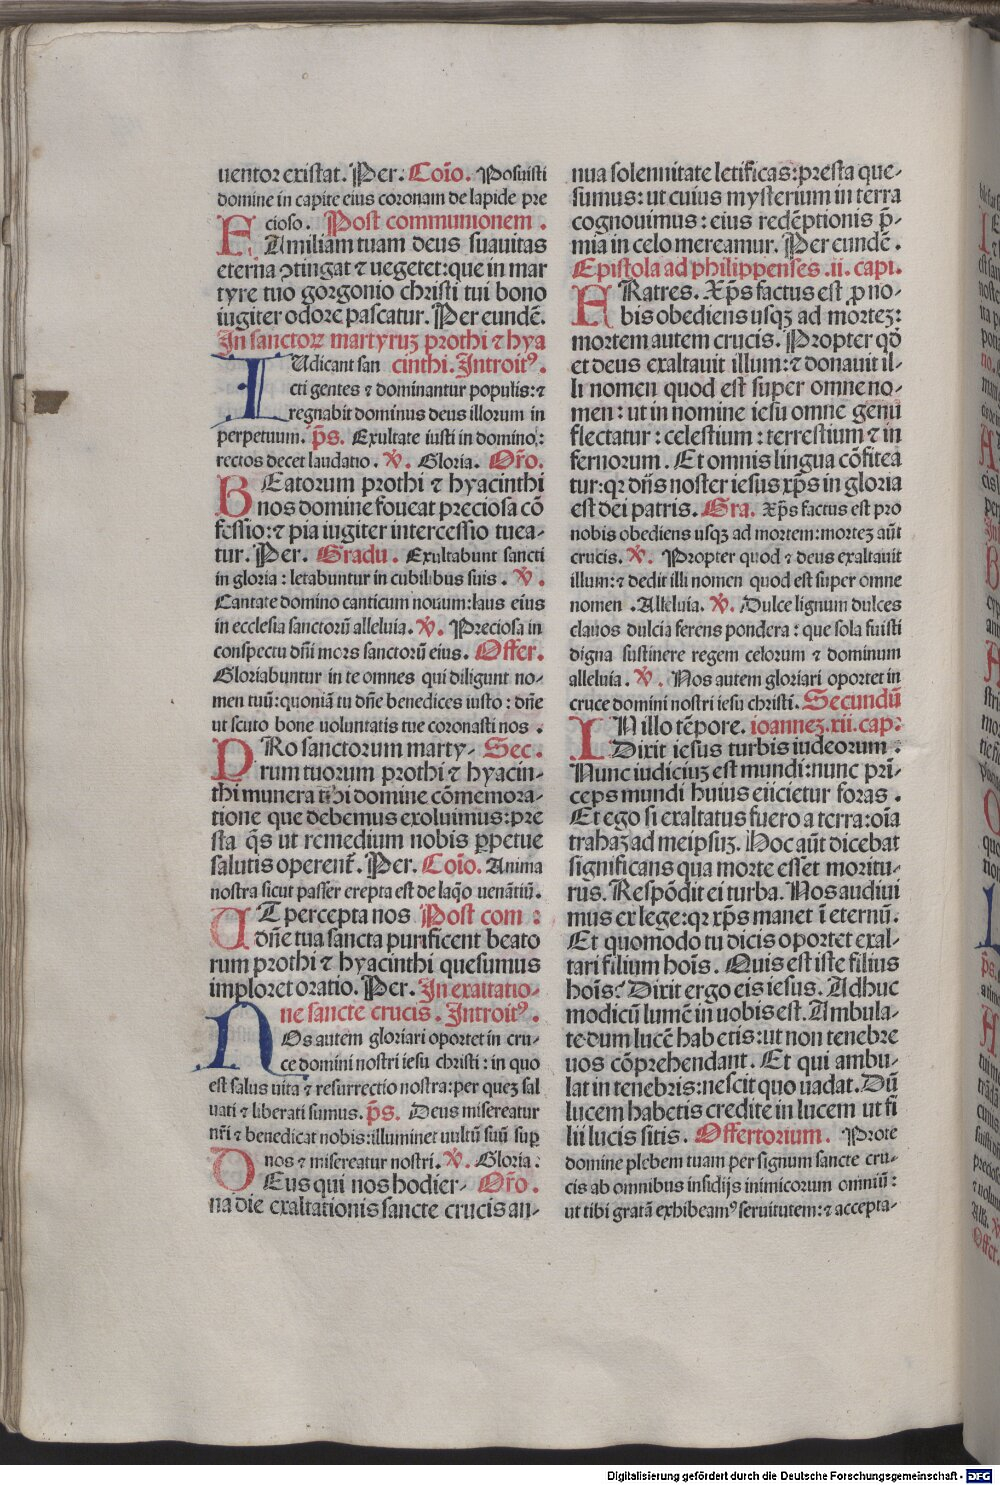 uentor existat. Per. Coĩo. Posuisti
domine in capite eius coronam de lapide pre
cioso. Post communionem.
FAmiliam tuam deus suauitas
eterna ↄtingat ⁊ uegetet: que in mar
tyre tuo gorgonio christi tui bono
iugiter odore pascatur. Per eundẽ.
In sanctoꝝ martyruꝫ prothi ⁊ hya
IUdicant san cinthi. Introitꝰ.
cti gentes ⁊ dominantur populis: ⁊
regnabit dominus deus illorum in
perpetuum. p̃s. Exultate iusti in domino:
rectos decet laudatio. ℣. Gloria. Or̃o.
BEatorum prothi ⁊ hyacinthi
nos domine foueat preciosa cõ
fessio: ⁊ pia iugiter intercessio tuea-
tur. Per. Gradu. Exultabunt sancti
in gloria: letabuntur in cubilibus suis. ℣.
Cantate domino canticum nouum: laus eius
in ecclesia sanctorũ alleluia. ℣. Preciosa in
conspectu dñi mors sanctorũ eius. Offer.
Gloriabuntur in te omnes qui diligunt no-
men tuũ: quoniã tu dñe benedices iusto: dñe
ut scuto bone uoluntatis tue coronasti nos.
PRo sanctorum marty- Sec.
rum tuorum prothi ⁊ hyacin-
thi munera tibi domine cõmemora-
tione que debemus exoluimus: pre
sta q̃s ut remedium nobis ꝑpetue
salutis operent̃. Per. Coĩo. Anima
nostra sicut passer erepta est de laq̃o uenãtiũ.
UT percepta nos Post com:
dñe tua sancta purificent beato
rum prothi ⁊ hyacinthi quesumus
imploret oratio. Per. In exaltatio-
ne sancte crucis. Introitꝰ.
NOs autem gloriari oportet in cru-
ce domini nostri iesu christi: in quo
est salus uita ⁊ resurrectio nostra: per queꝫ sal
uati ⁊ liberati sumus. p̃s. Deus misereatur
nr̃i ⁊ benedicat nobis: illuminet uultũ suũ suꝑ
nos ⁊ misereatur nostri. ℣. Gloria.
DEus qui nos hodier- Or̃o.
na die exaltationis sancte crucis an-
nua solennitate letificas: presta que-
sumus: ut cuius mysterium in terra
cognouimus: eius redẽptionis p̃-
mia in celo mereamur. Per eundẽ.
Epistola ad philippenses .ii. capi.
FRatres. Xp̃s factus est ꝓ no-
bis obediens usqꝫ ad morteꝫ:
mortem autem crucis. Propter qð
et deus exaltauit illum: ⁊ donauit il-
li nomen quod est super omne no-
men: ut in nomine iesu omne genu
flectatur: celestium: terrestium ⁊ in
fernorum. Et omnis lingua cõfitea
tur: qꝛ dñs noster iesus xp̃s in gloria
est dei patris. Gra. Xp̃s factus est pro
nobis obediens usqꝫ ad mortem: morteꝫ aũt
crucis. ℣. Propter quod ⁊ deus exaltauit
illum: ⁊ dedit illi nomen quod est super omne
nomen. Alleluia. ℣. Dulce lignum dulces
clauos dulcia ferens pondera: que sola fuisti
digna sustinere regem celorum ⁊ dominum
alleluia. ℣. Nos autem gloriari oportet in
cruce domini nostri iesu christi. Secundũ
IN illo tẽpore. ioanneꝫ .xii. cap:
Dixit iesus turbis iudeorum:
Nunc iudiciuꝫ est mundi: nunc pri-
ceps mundi huius eiicietur foras.
Et ego si exaltatus fuero a terra: oĩa
trahaꝫ ad meipsuꝫ. Hoc aũt dicebat
significans qua morte esset moritu-
rus. Respõdit ei turba. Nos audiui
mus ex lege: qꝛ xp̃s manet ĩ eternũ.
Et quomodo tu dicis oportet exal-
tari filium hoĩs. Quis est iste filius
hoĩs? Dixit ergo eis iesus. Adhuc
modicũ lumẽ in uobis est. Ambula-
te dum lucẽ habetis: ut non tenebre
uos cõprehendant. Et qui ambu-
lat in tenebris: nescit quo uadat. Dũ
lucem habetis credite in lucem ut fi
lii lucis sitis. Offertorium. Prote
domine plebem tuam per signum sancte cru-
cis ab omnibus insidijs inimicorum omniũ:
ut tibi gratã exhibeamꝰ seruitutem: ⁊ accepta-
Digitalisierung gefördert durch die Deutsche Forschungsgemeinschaft - DFG